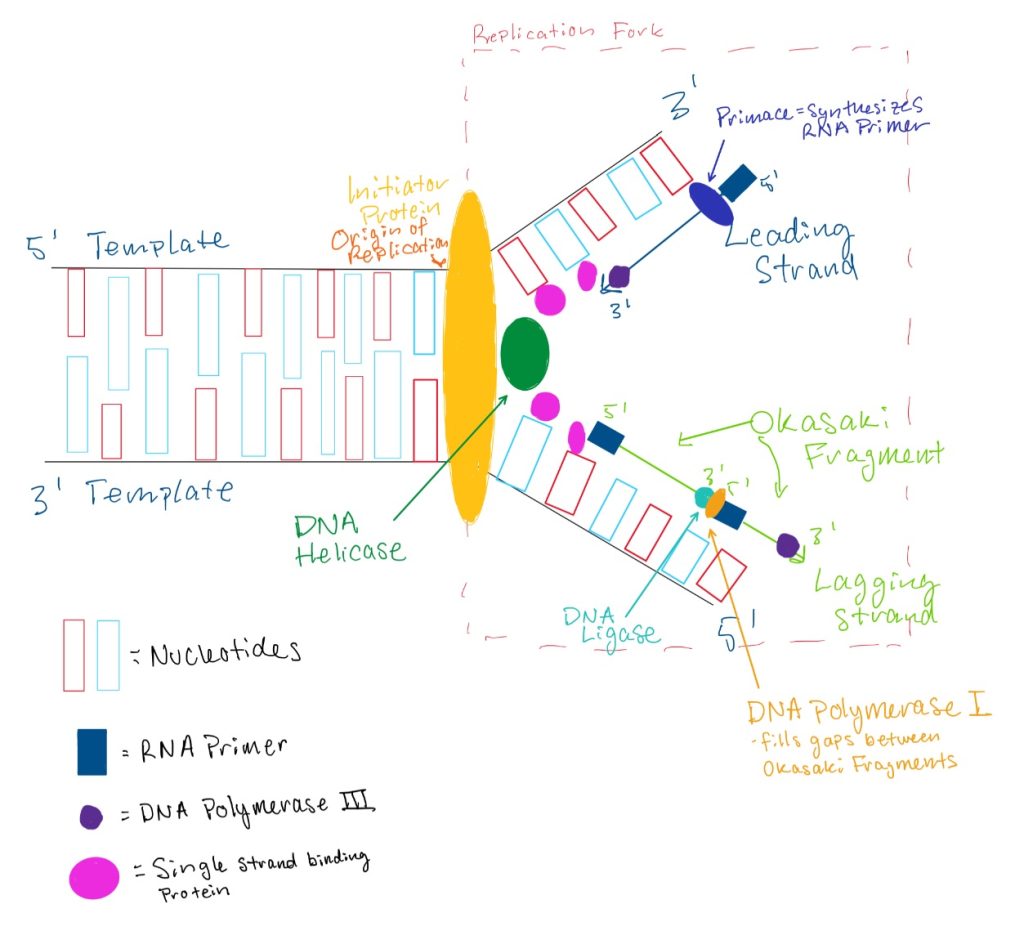 Replication Fork
3'
Primace = Synthesizes
RNA Primer
5'
Initiator
Protein
Origin of
Replication
5' Template
Leading
Strand
3'
5'
Okasaki
Fragment
3' Template
3'
5'
3'
DNA
Helicase
Lagging
Strand
DNA
Ligase
5'
= Nucleotides
DNA Polymerase I
- fills gaps between
Okasaki Fragments
= RNA Primer
= DNA Polymerase III
= Single strand binding
Protein